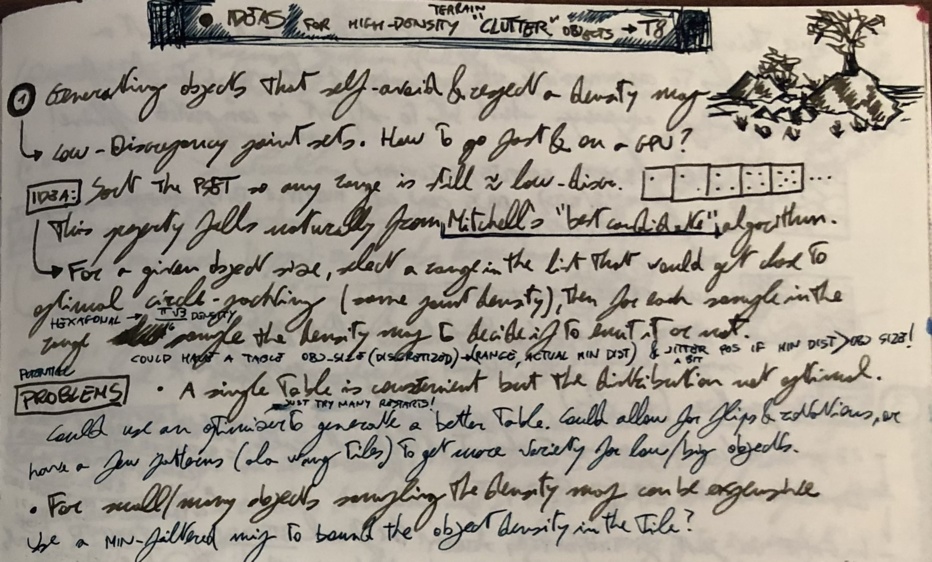 • IDEAS FOR HIGH-DENSITY TERRAIN "CLUTTER" OBJECTS → T8
① Generating objects that self-avoid & respect a density map
↳ Low-Discrepancy point sets. How to go fast & on a GPU?
IDEA: Sort the PSET so any range is still ≈ low-discr. ...
This property falls naturally from Mitchell's "best candidate" algorithm.
↳ For a given object size, select a range in the list that would get close to
optimal circle-packing (some point density), then for each sample in the
HEXAGONAL → π√3/6 DENSITY
range sample the density map to decide if to emit it or not.
COULD HAVE A TABLE OBJ-SIZE (DISCRETIZED) → (RANGE, ACTUAL MIN DIST) & JITTER POS IF MIN DIST > OBJ SIZE!
A BIT
POTENTIAL
PROBLEMS • A single Table is convenient but the distribution not optimal.
JUST TRY MANY RESTARTS!
Could use an optimiser to generate a better Table. Could allow for flips & rotations, or
have a few patterns (ala wang Tiles) to get more variety for low/big objects.
• For small/many objects sampling the density map can be expensive
Use a MIN-filtered mip to bound the object density in the Tile?